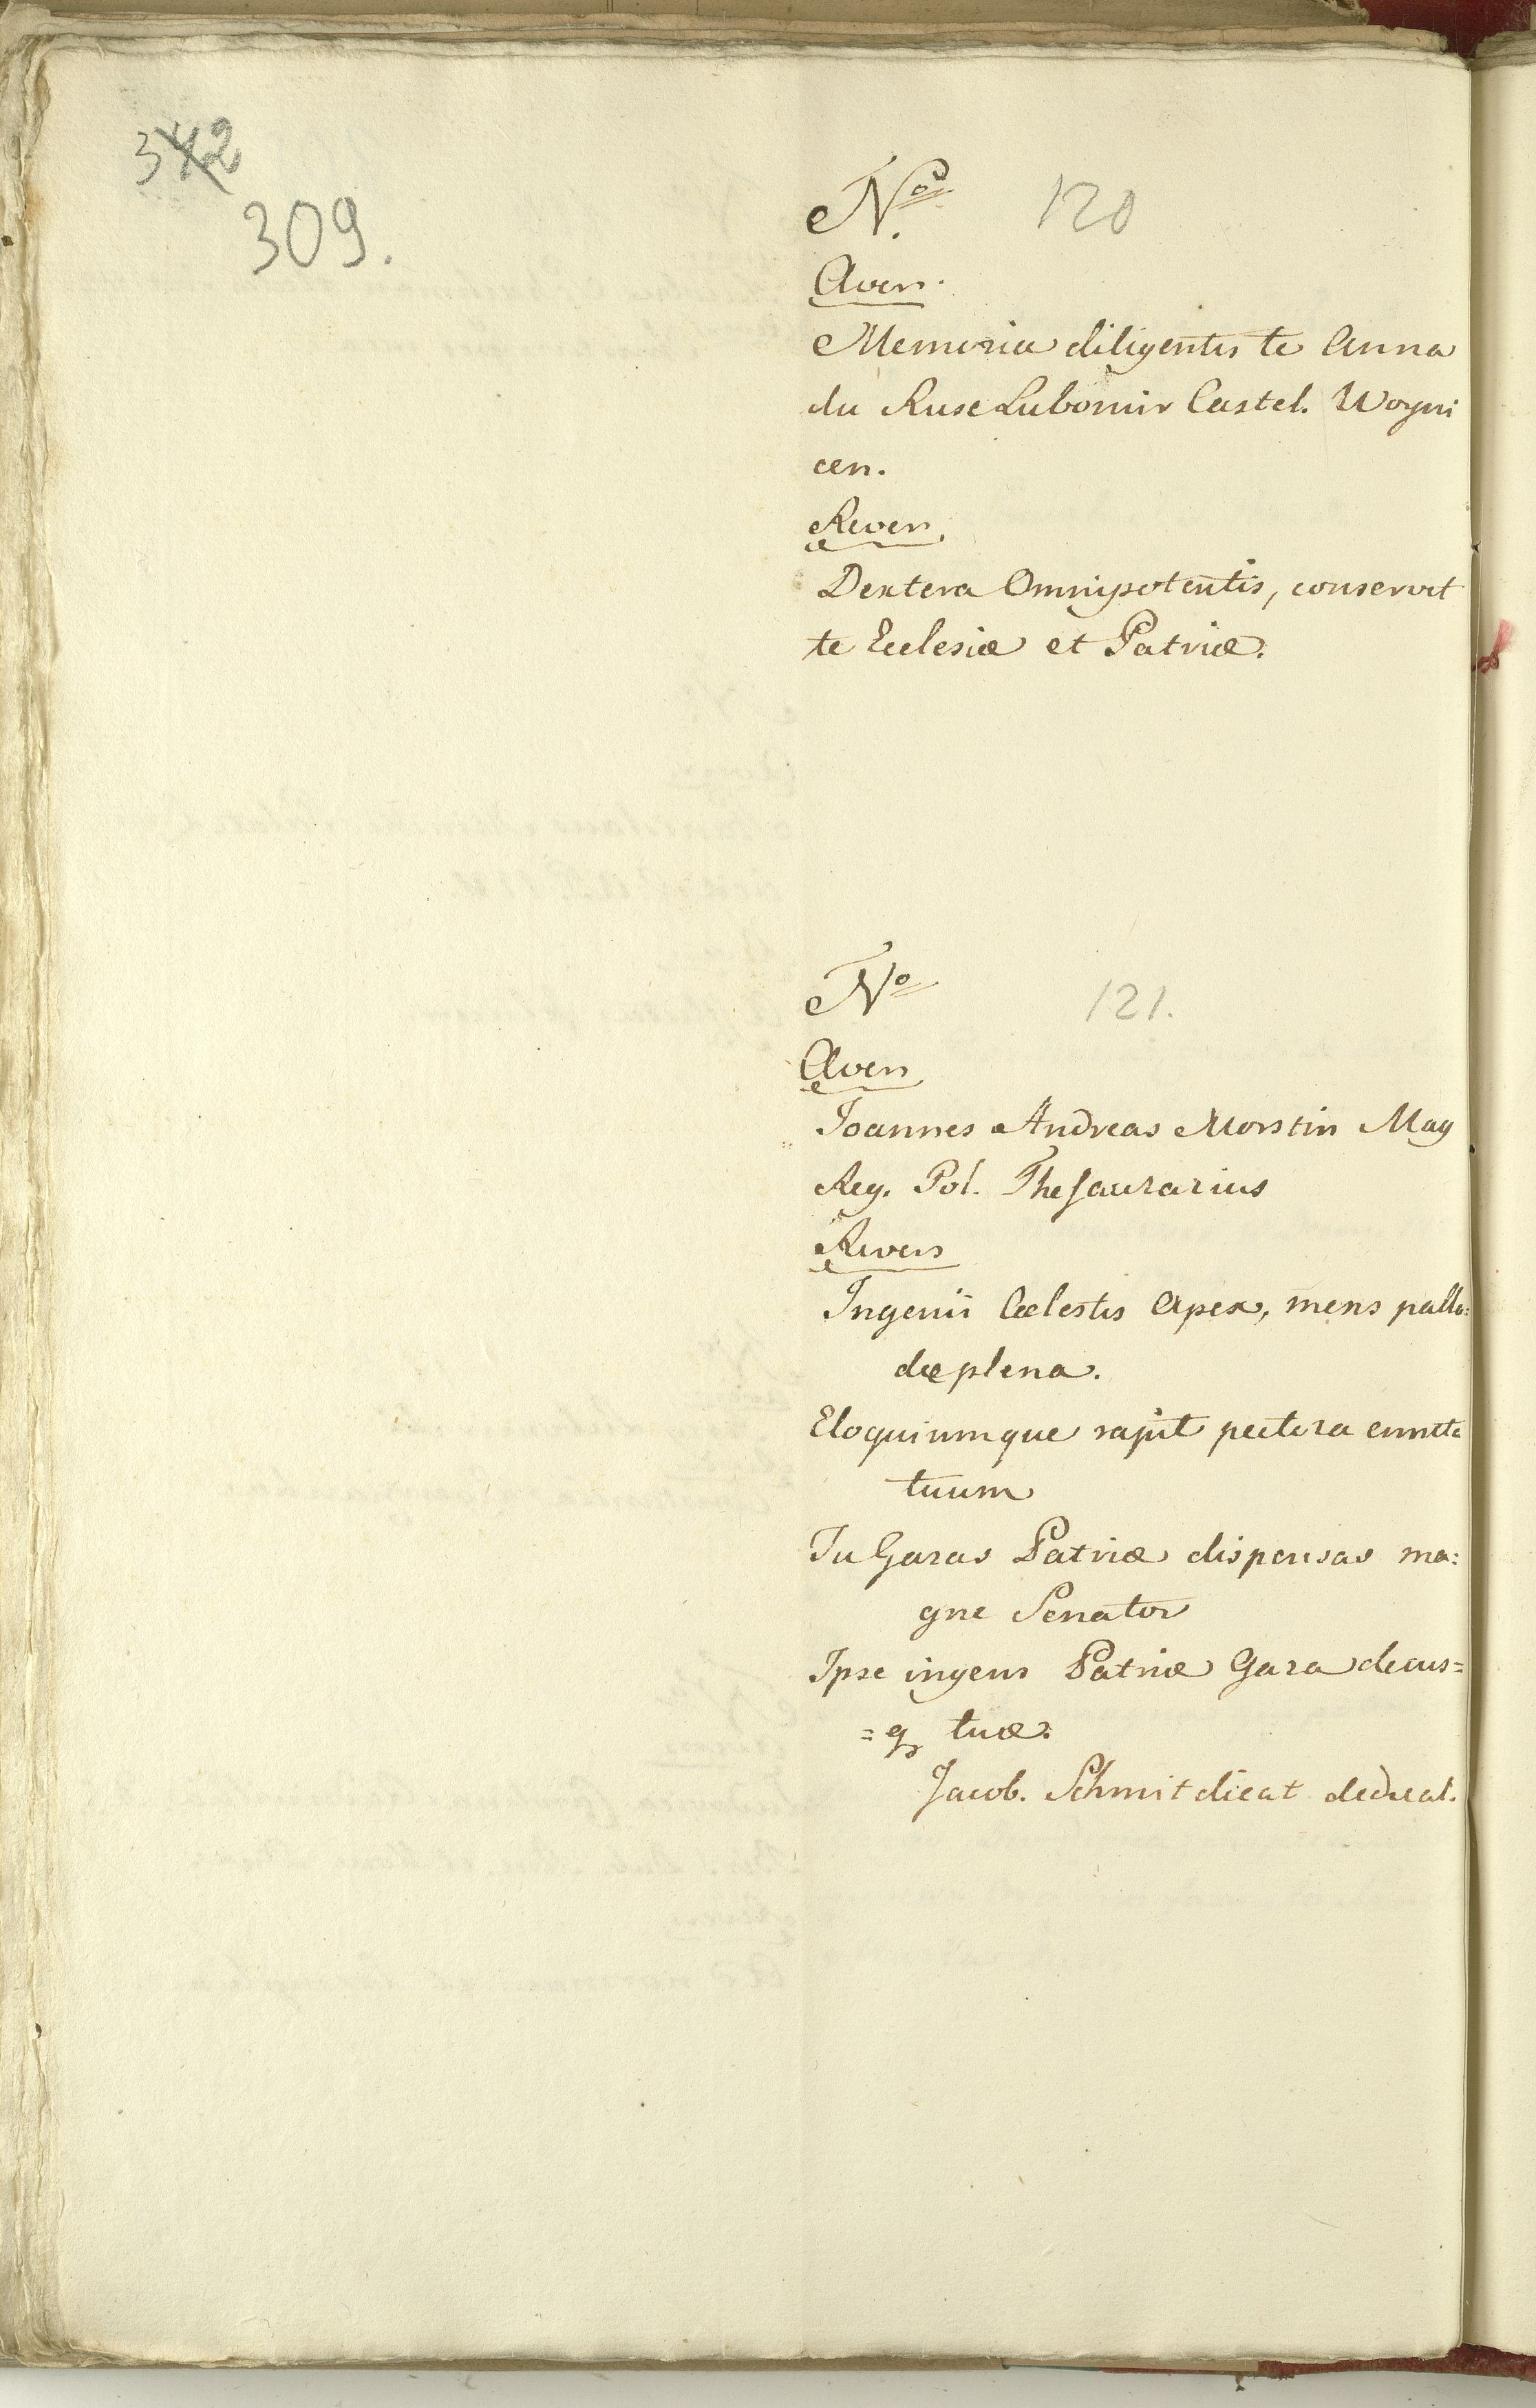 342
309.
No. 120
Avers.
Memoria diligentis te Anna
du Ruse Lubomir Castel. Woyni
cen.
Revers.
Dextera Omnipotentis, conservet
te Ecclesiæ et Patriæ.
No 121.
Avers
Joannes Andreas Morstin Mag
Reg. Pol. Thesaurarius
Revers
Ingenii Cælestis Apex, mens palla:
dæ plena.
Eloquiumque rapit pectora
tuum
Tu Gazas Patriæ dispensas ma:
gne Senator
Ipse ingens Patriæ Gaza decus=
=q tuæ.
Jacob. Schmit dicat dedicat.